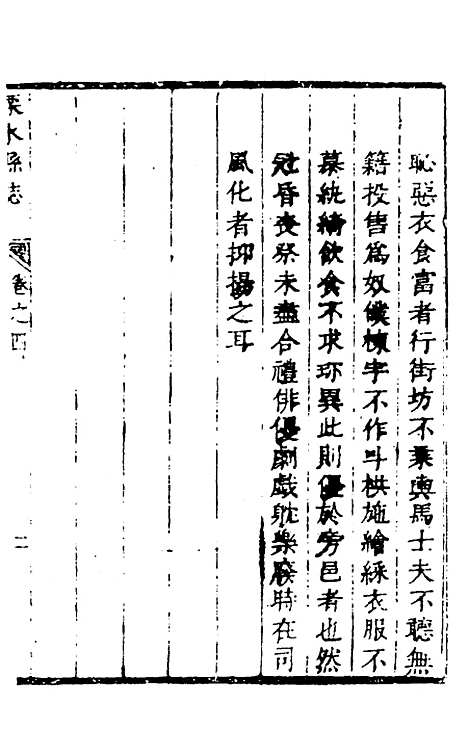 恥惡衣食富者行街坊不乘輿馬士夫不聽無
籍投售爲奴僕棟宇不作斗栱施繪綵衣服不
慕紈綺飲食不求珍異此則優於旁邑者也然
冠昏喪祭未盡合禮俳優劇戲耽樂廢時在司
風化者抑揚之耳
栗水縣志 卷之四 二